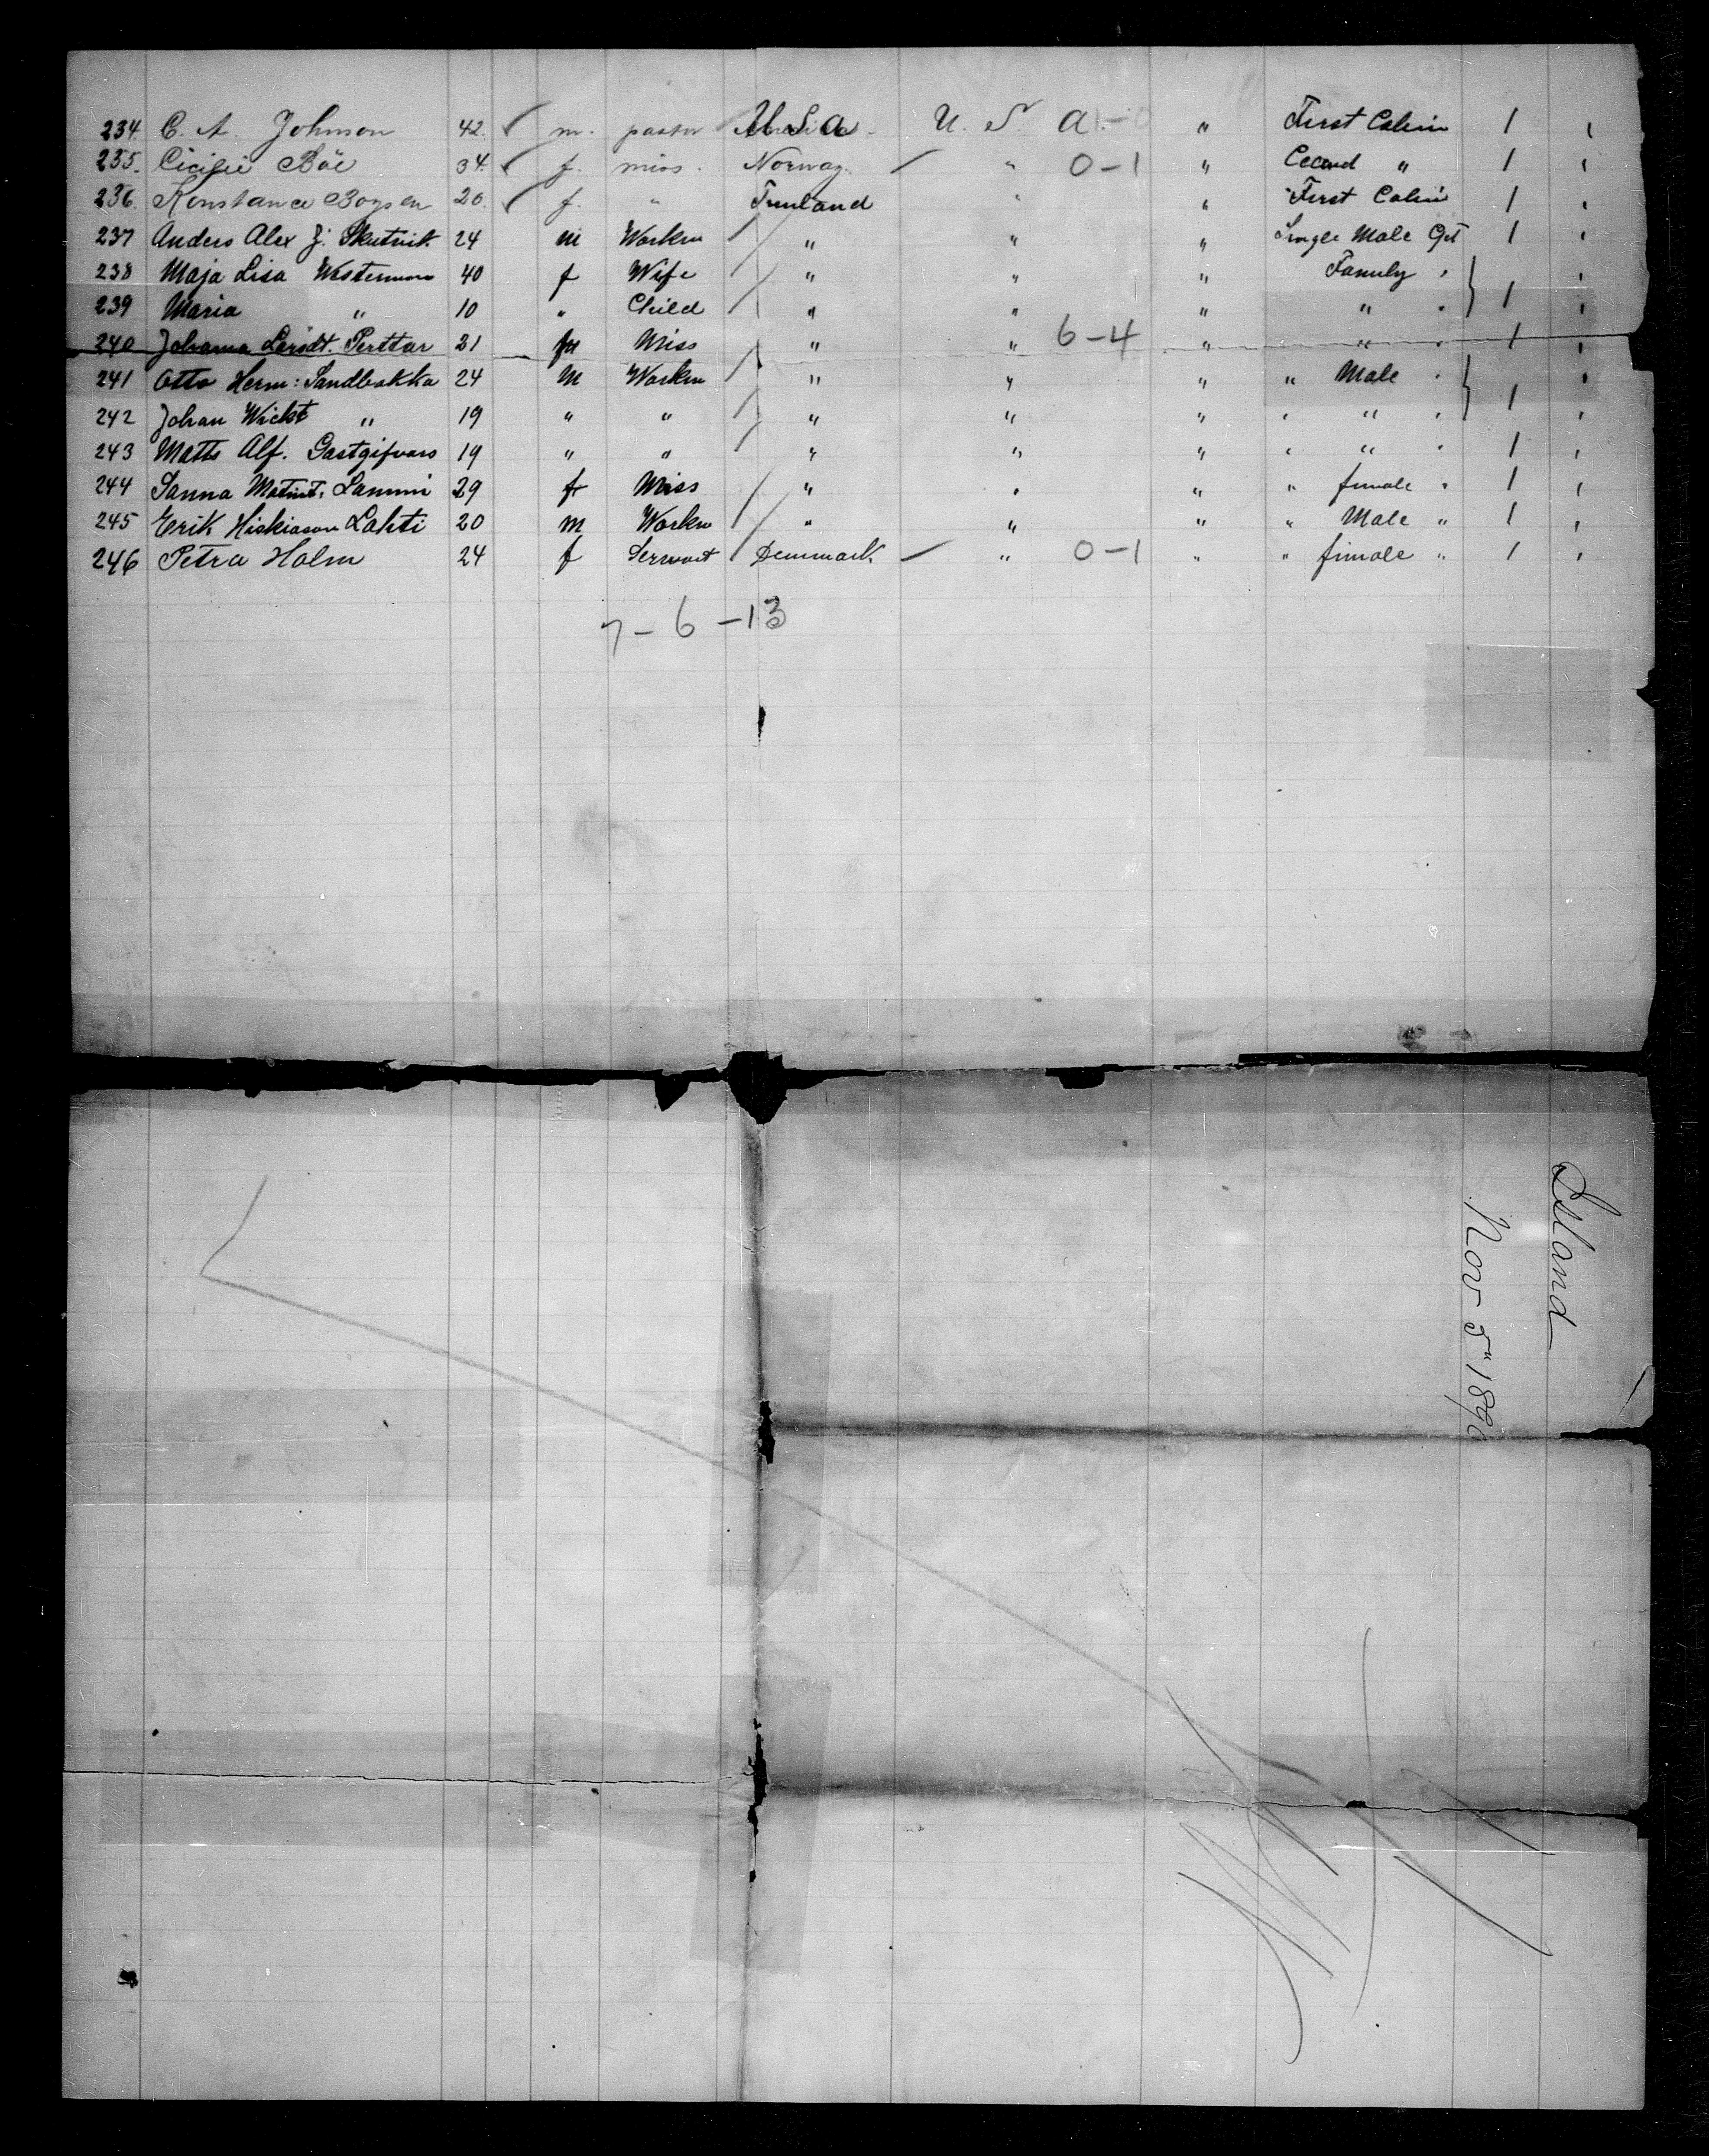 234. C. A. Johnson 42. m. pastor U S A U. S. A. " First Cabin 1
235. Cicilie Böe 34. f. miss. Norway " 0-1 " Cecond " 1
236. Konstance Boysen 20. f. " Finnland " " First Cabin 1
237 Anders Alex J: Skutnik 24 m Workm " " " Single Male Cpt 1
238 Maja Lisa 40 f Wife " " " Family "
239 Maria " 10 " Child " " " " " 1
240 Johanna Larsdt. Perttar 21 f Miss " " 6-4 " " " 1
241 Otto Herm: Sandbakka 24 m Workm " " " " Male "
242 Johan Wickt " 19 " " " " " " " " 1
243 Matts Alf. Gastgifvars 19 " " " " " " " " 1
244 Sanna Matsdt. Lammi 29 f Miss " " " " female " 1
245 Erik Hiskiason Lahti 20 m Workm " " " " Male " 1
246 Petra Holm 24 f Servant Denmark " 0-1 " " female " 1
7-6-13
Island
Nov 5" 1896